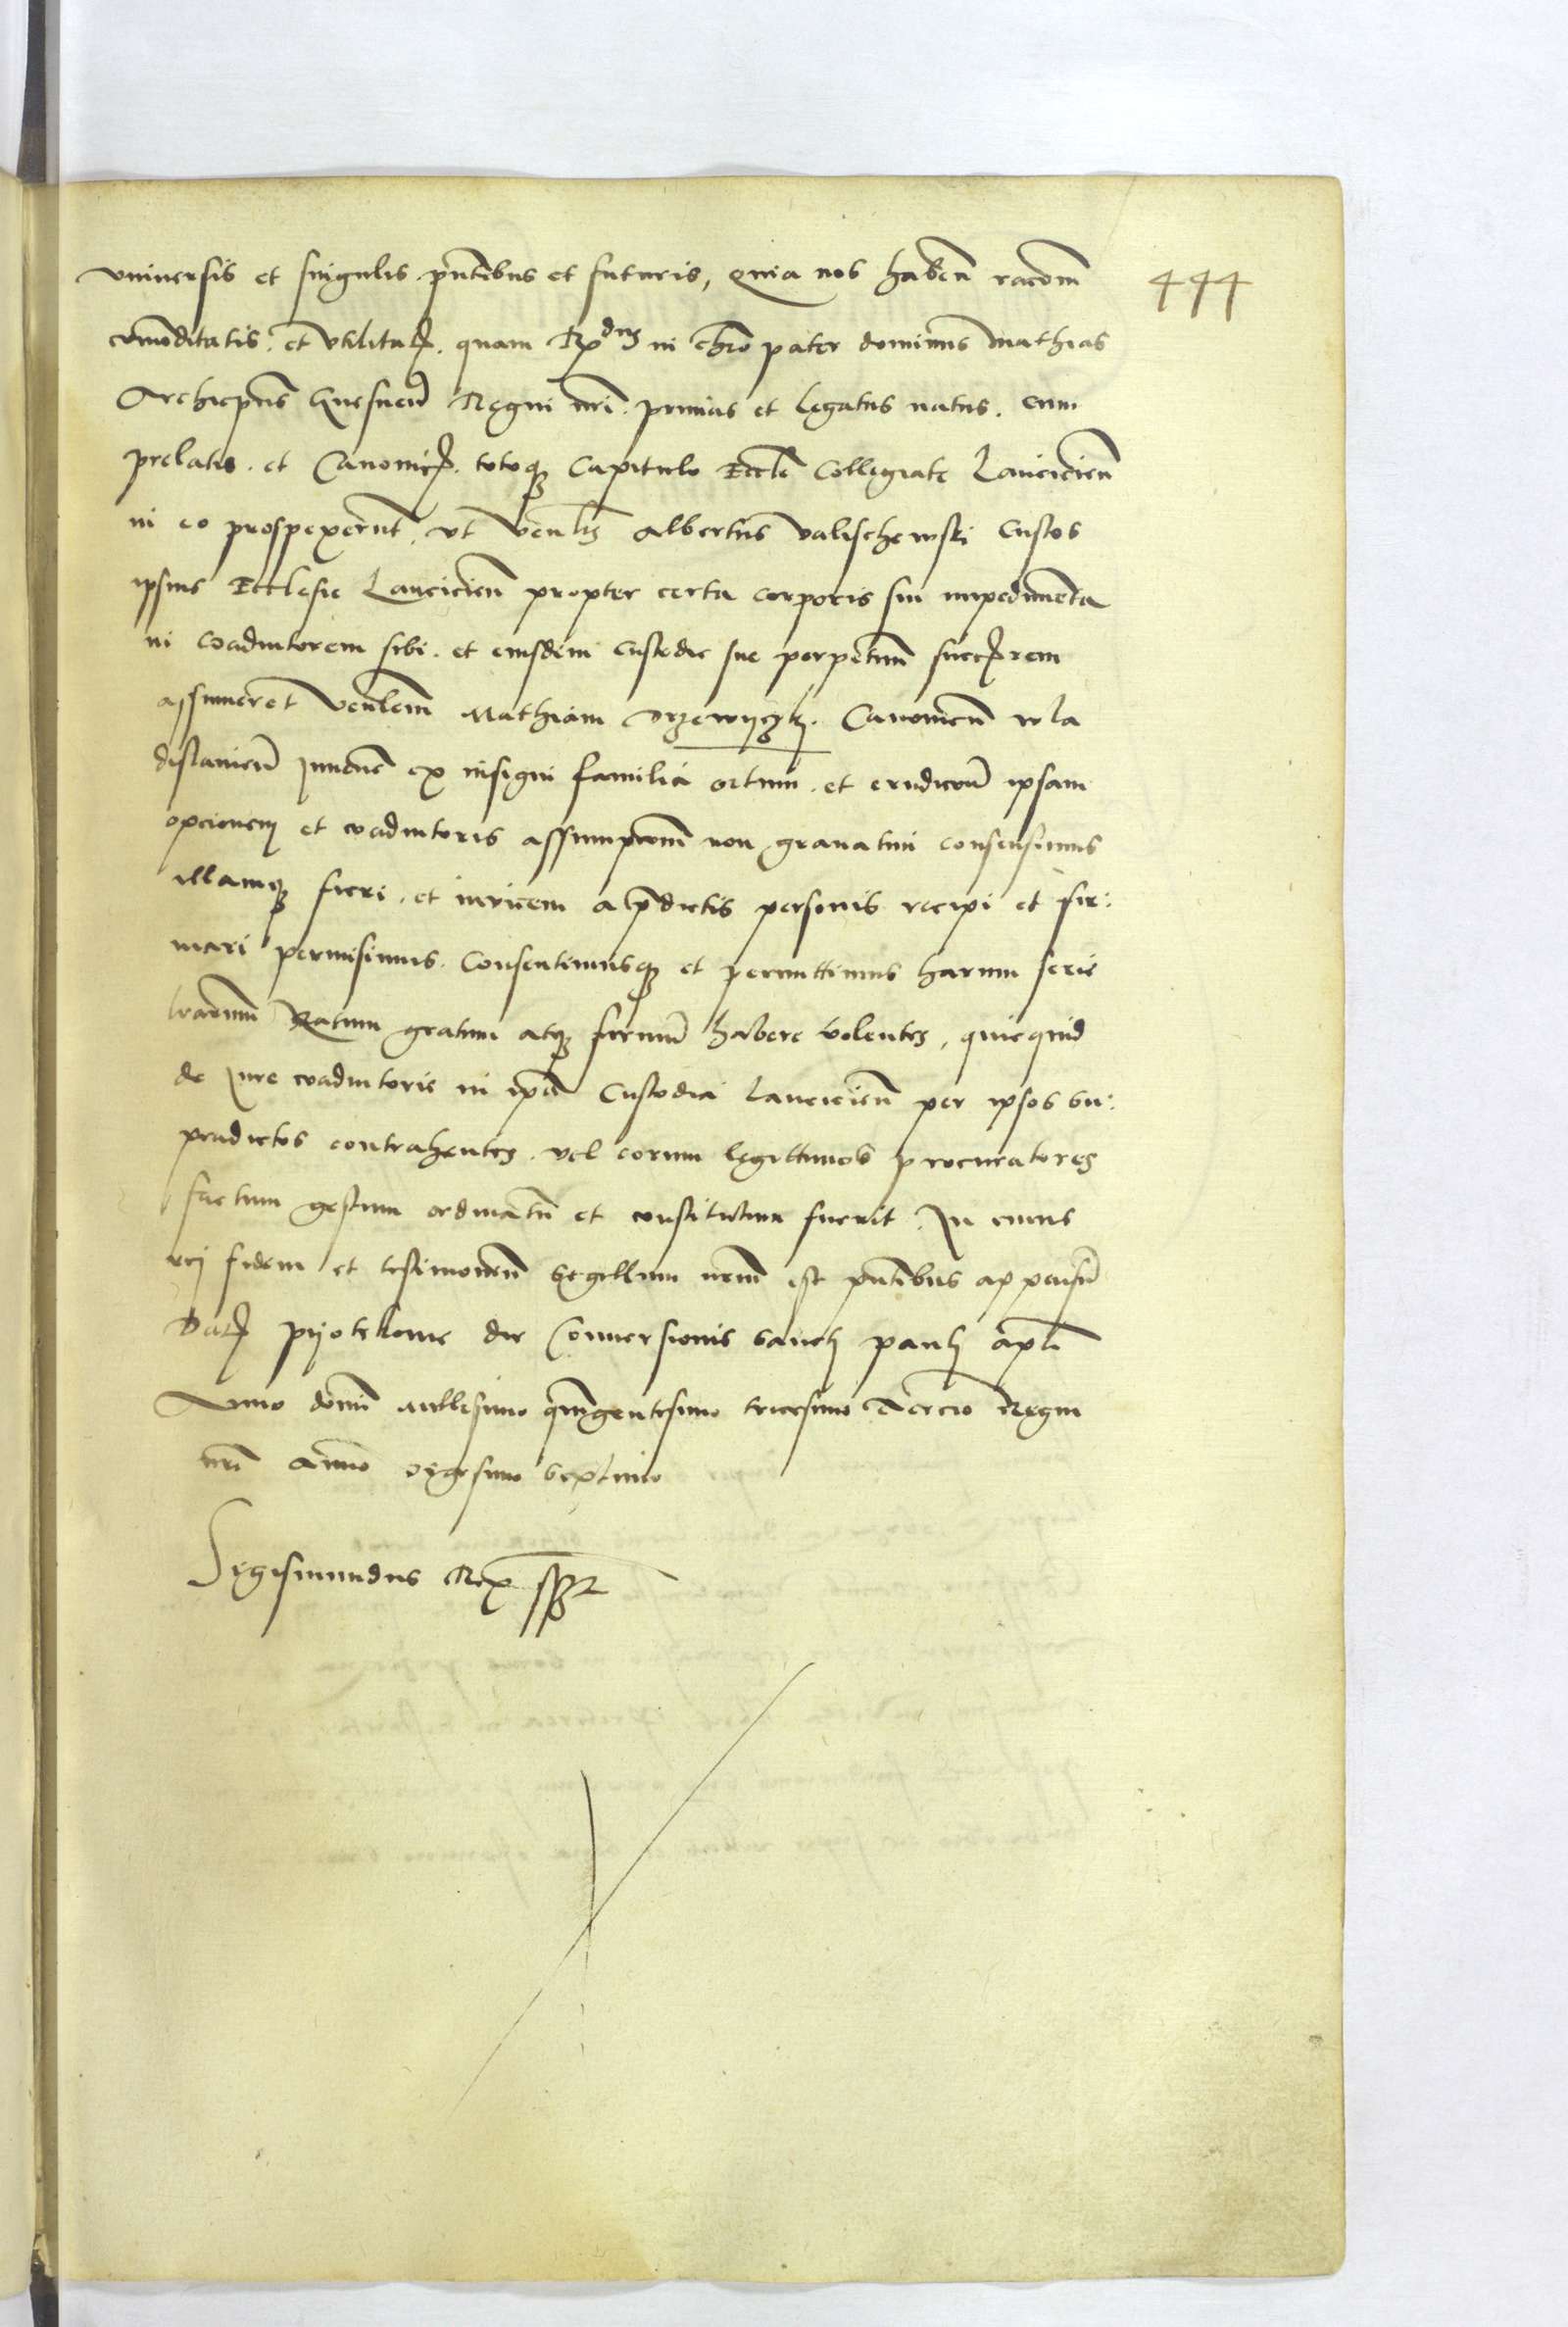 vniversis et singulis pntibus et futuris, Quia nos haben racōm
cōmoditatis et vtilitatis quam Rxdus in chro pater dominus Mathias
Archieps Gnesnen Regni nri primas et legatus natus cum
prelatis et Canonicis totoq Capitulo Eccle Collegiate Lancicien
in eo prospexerunt vt Venlis Albertus valischewski Custos
ipsius Ecclesie Lancicien propter certa corporis sui impedimenta
in Coadiutorem sibi et eiusdem custodie sue perpetuum successorem
assumeret Venlem Mathiam Drzewyczky Canonicum wla
dislavien Juvene ex insigni familia ortum et eruditum ipsam
opcionem et coadiutoris assumpcōm non gravatim consensimus
illamq fieri et invicem a pdictis personis recipi et fir:
mari permisimus Consentimusq et permittimus harum serie
lrarum Ratum gratum atq firmum habere volentes, quicquid
de Jure coadiutorie in ipsa Custodia Lancicien per ipsos su:
pradictos contrahentes vel eorum legittimos procuratores
factum gestum ordinatum et constitutum fuerit In cuius
rei fidem et testimonium Sigillum nrm est pntibus appensum
Datis Pyotrkowie die Conversionis sancti pauli apli
Anno domini millesimo quingentesimo tricesimo Tercio Regni
nri Anno vigesimo septimo
Sigismundus Rex sspt
444